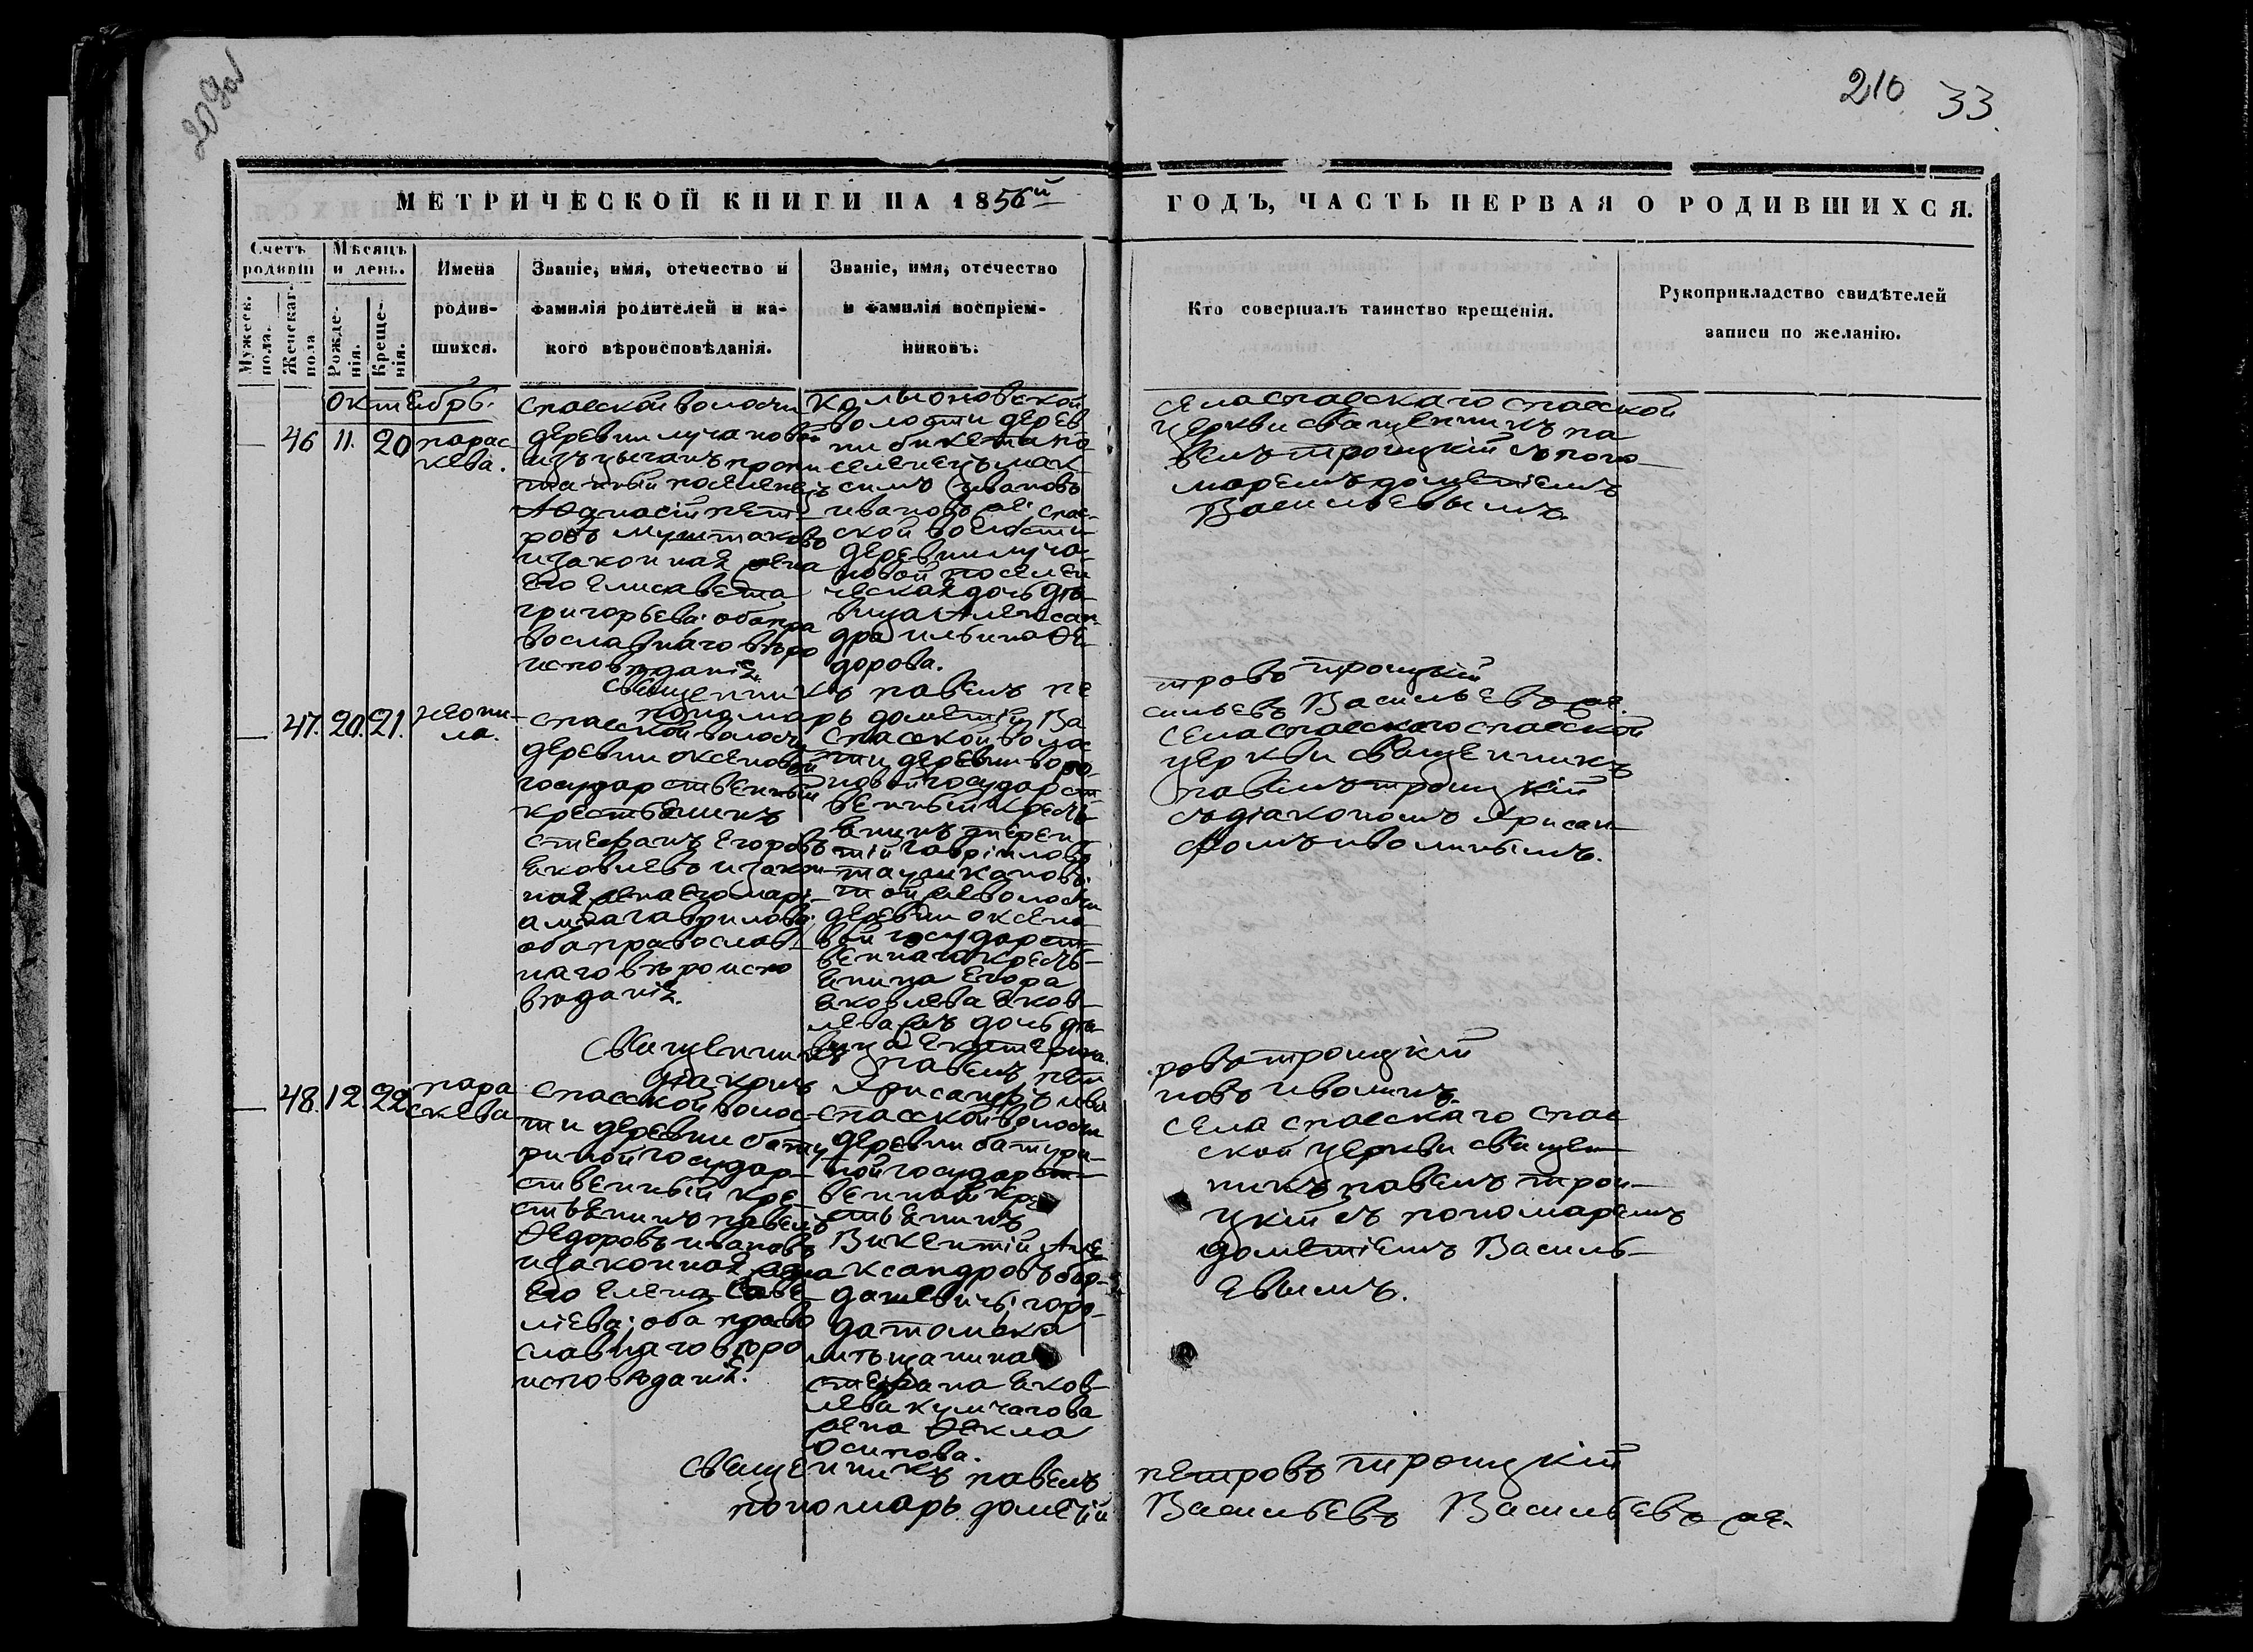 209об
210 33.
МЕТРИЧЕСКОЙ КНИГИ НА 1856й
ГОДЪ, ЧАСТЬ ПЕРВАЯ О РОДИВШИХСЯ.
Счетъ родивш
Мужеск. пола.
Женскаг. пола
Мѣсяцъ и день.
Рожденія.
Крещенія.
Имена
родив-
шихся.
Званіе, имя, отечество и
фамилія родителей и ка-
кого вѣроисповѣданія.
Званіе, имя, отечество
и фамилія воспріем-
никовъ.
Кто совершалъ таинство крещенія.
Рукоприкладство свидѣтелей
записи по желанію.
октябрь.
46 11. 20
парас
кева.
спасской волости
деревни лучановой
изъ цыганъ пропи
танный поселенецъ
пет
ровъ
и законная жена
его елисавета
григорьева: оба пра
вославнаго вѣро
исповѣданія.
волости дерев
ни
селенецъ мак
симъ ивановъ
ивановъ же: спас-
ской волости
деревни луча-
новой поселен
ческая дочь дѣ-
вица Алексан
дра ильина Ѳе-
дорова.
села спасскаго спасской
церкви священникъ па
велъ троицкій съ поно-
маремъ дометіемъ
Васильевымъ.
священникъ павелъ пе
тровъ троицкій
пономарь дометій Ва
сильевъ Васильевъ же.
47. 20. 21.
неони-
ла.
спасской волости
деревни аксеновой
государственный
крестьянинъ
стефанъ егоровъ
яковлевъ и закон-
ная жена его марі-
амна гаврилова:
оба православ-
наго вѣроиспо
вѣданія.
спасской волос
ти деревни воро-
новой государст
венный кресть
янинъ
той же волости
деревни аксено
вой государст
веннаго кресть-
янина егора
яковлева яков-
лева дочь дѣ-
вица екатерина.
села спасскаго спасской
церкви священникъ
павелъ троицкій
съ діакономъ хрисан-
фомъ иволинымъ.
священникъ павелъ пет
ровъ троицкій
діаконъ хрисанфъ ива
новъ иволинъ.
48. 12. 22
пара
скева
спасской волос-
ти деревни бату
риной государ-
ственный кре
стьянинъ павелъ
Ѳедоровъ ивановъ
и законная жена
его елена саве-
ліева; оба право
славнаго вѣро
исповѣданія.
спасской волости
деревни батури-
ной государст-
венной кре
стьянинъ
Викентій Але
ксандровъ
города томска
мѣщанина
стефана яков-
лева кумчагова
жена Ѳекла
осипова.
села спасскаго спас
ской церкви священ
никъ павелъ трои-
цкій съ пономаремъ
дометіемъ Василь-
евымъ.
священникъ павелъ
петровъ троицкій
пономарь дометій
Васильевъ Васильевъ же.